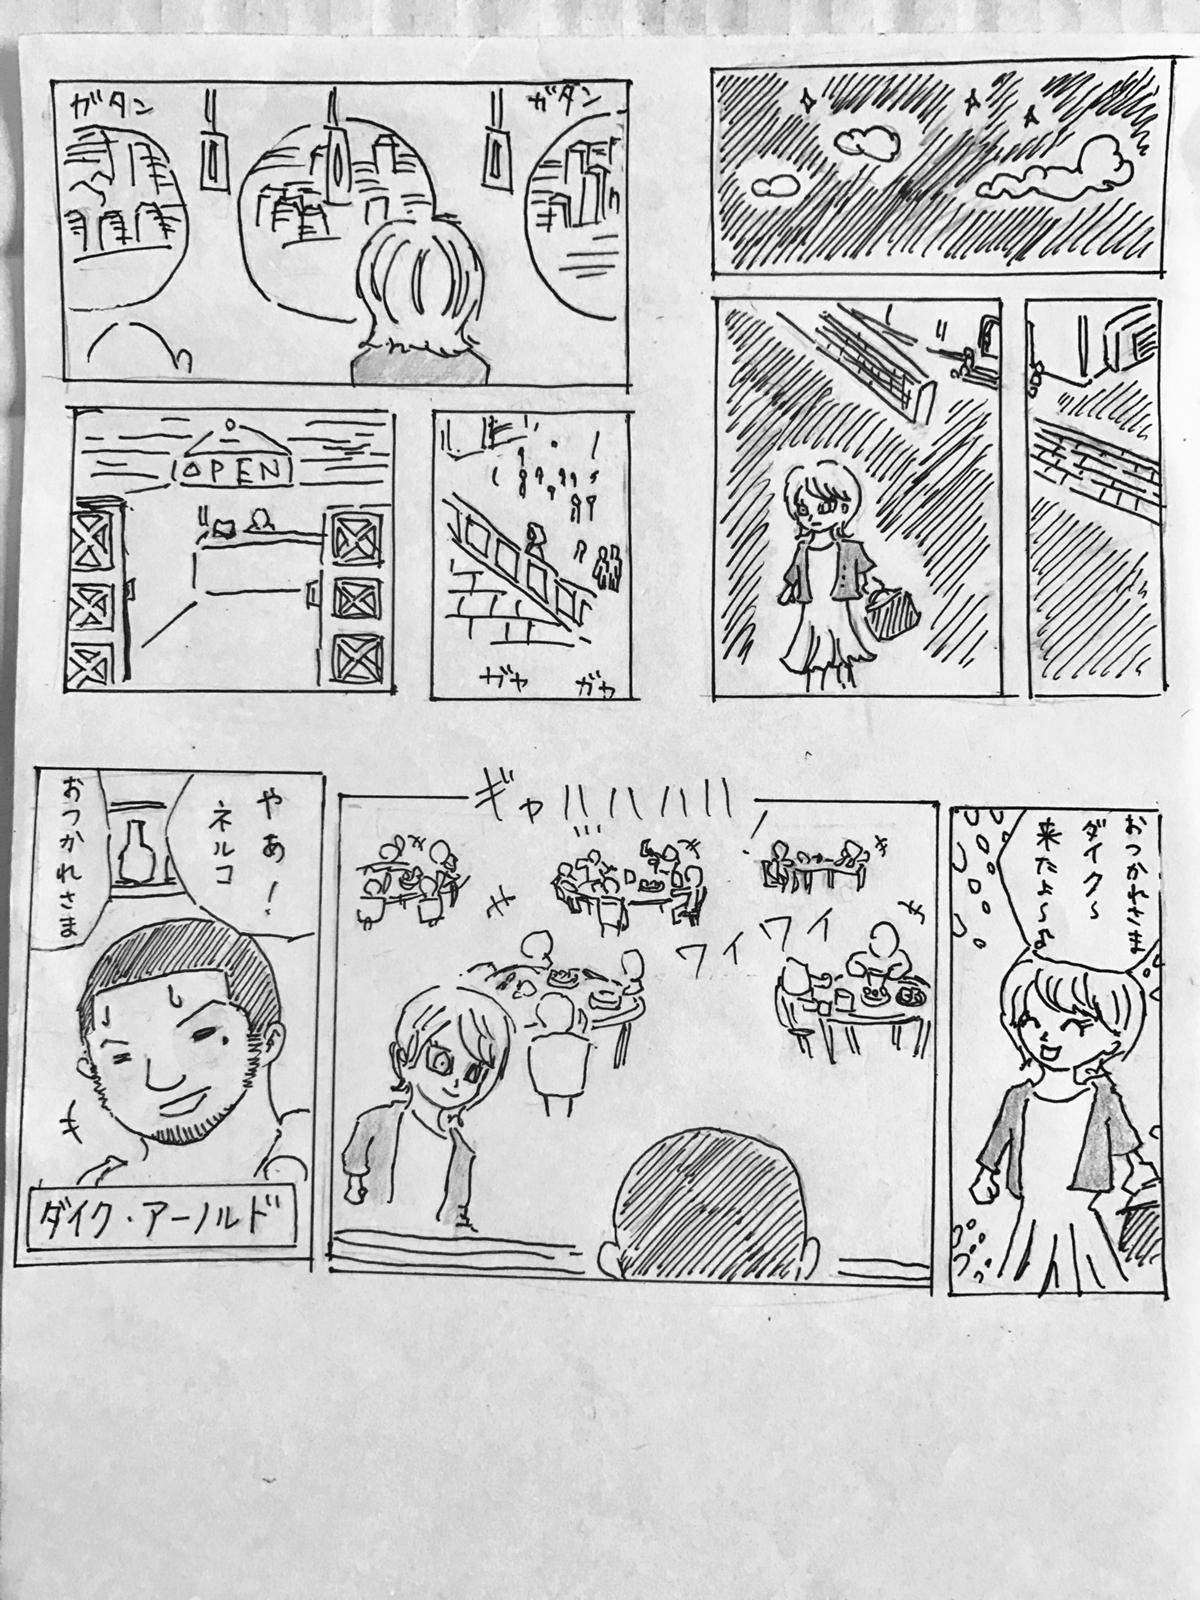 ガタン
ガタン
OPEN
ガヤ
ガヤ
おつかれさま
ダイク〜
来たよ〜♪
ギャハハハハ!!
ワイワイ
やあ!
ネルコ
おつかれさま
ダイク・アーノルド